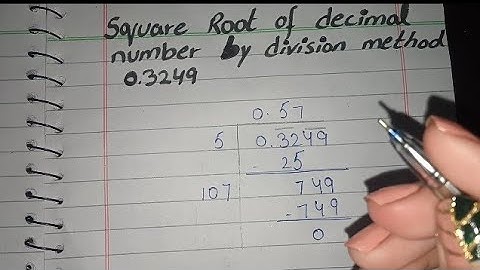 Square Root of decimal
number by division method
0.3249
0.57
5 0.3249
- 25
107 749
- 749
0